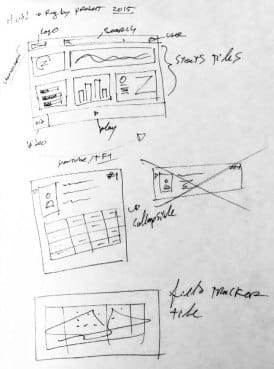 → Rugby project 2015
logo
SEARCH
USER
STATS TILES
play
video
collapsible
field TRACKER
tile